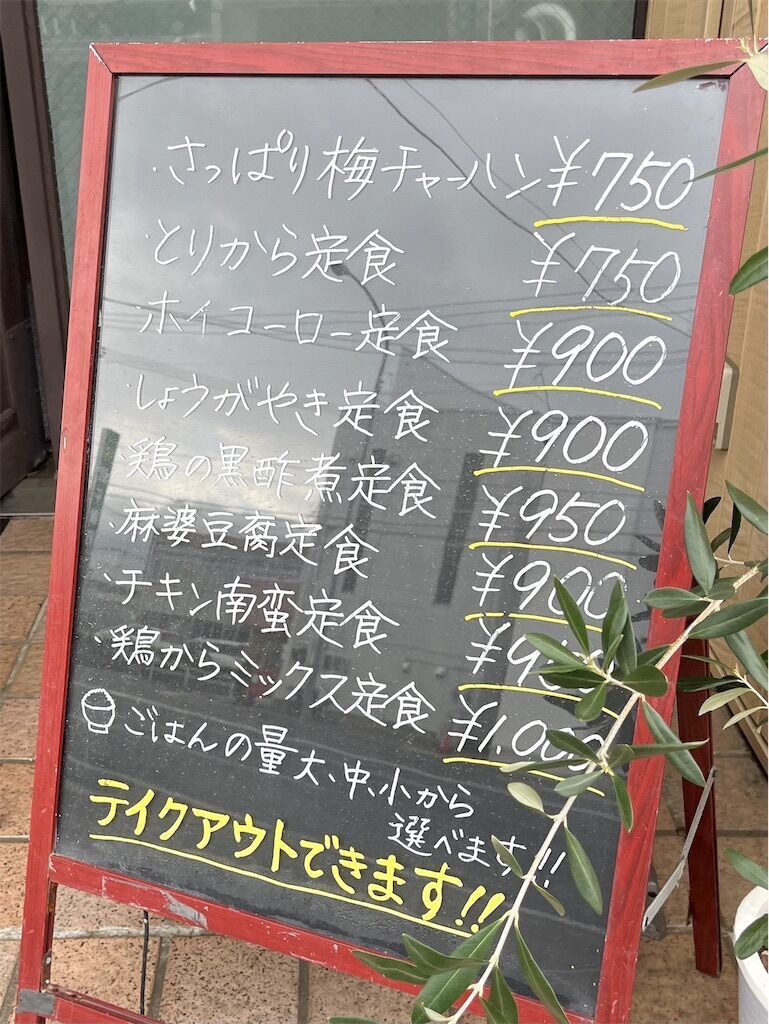 ・さっぱり梅チャーハン ¥750
・とりから定食 ¥750
・ホイコーロー定食 ¥900
・しょうがやき定食 ¥900
・鶏の黒酢煮定食 ¥950
・麻婆豆腐定食 ¥900
・チキン南蛮定食
・鶏からミックス定食 ¥1,000
ごはんの量大、中、小から
選べます!!
テイクアウトできます!!